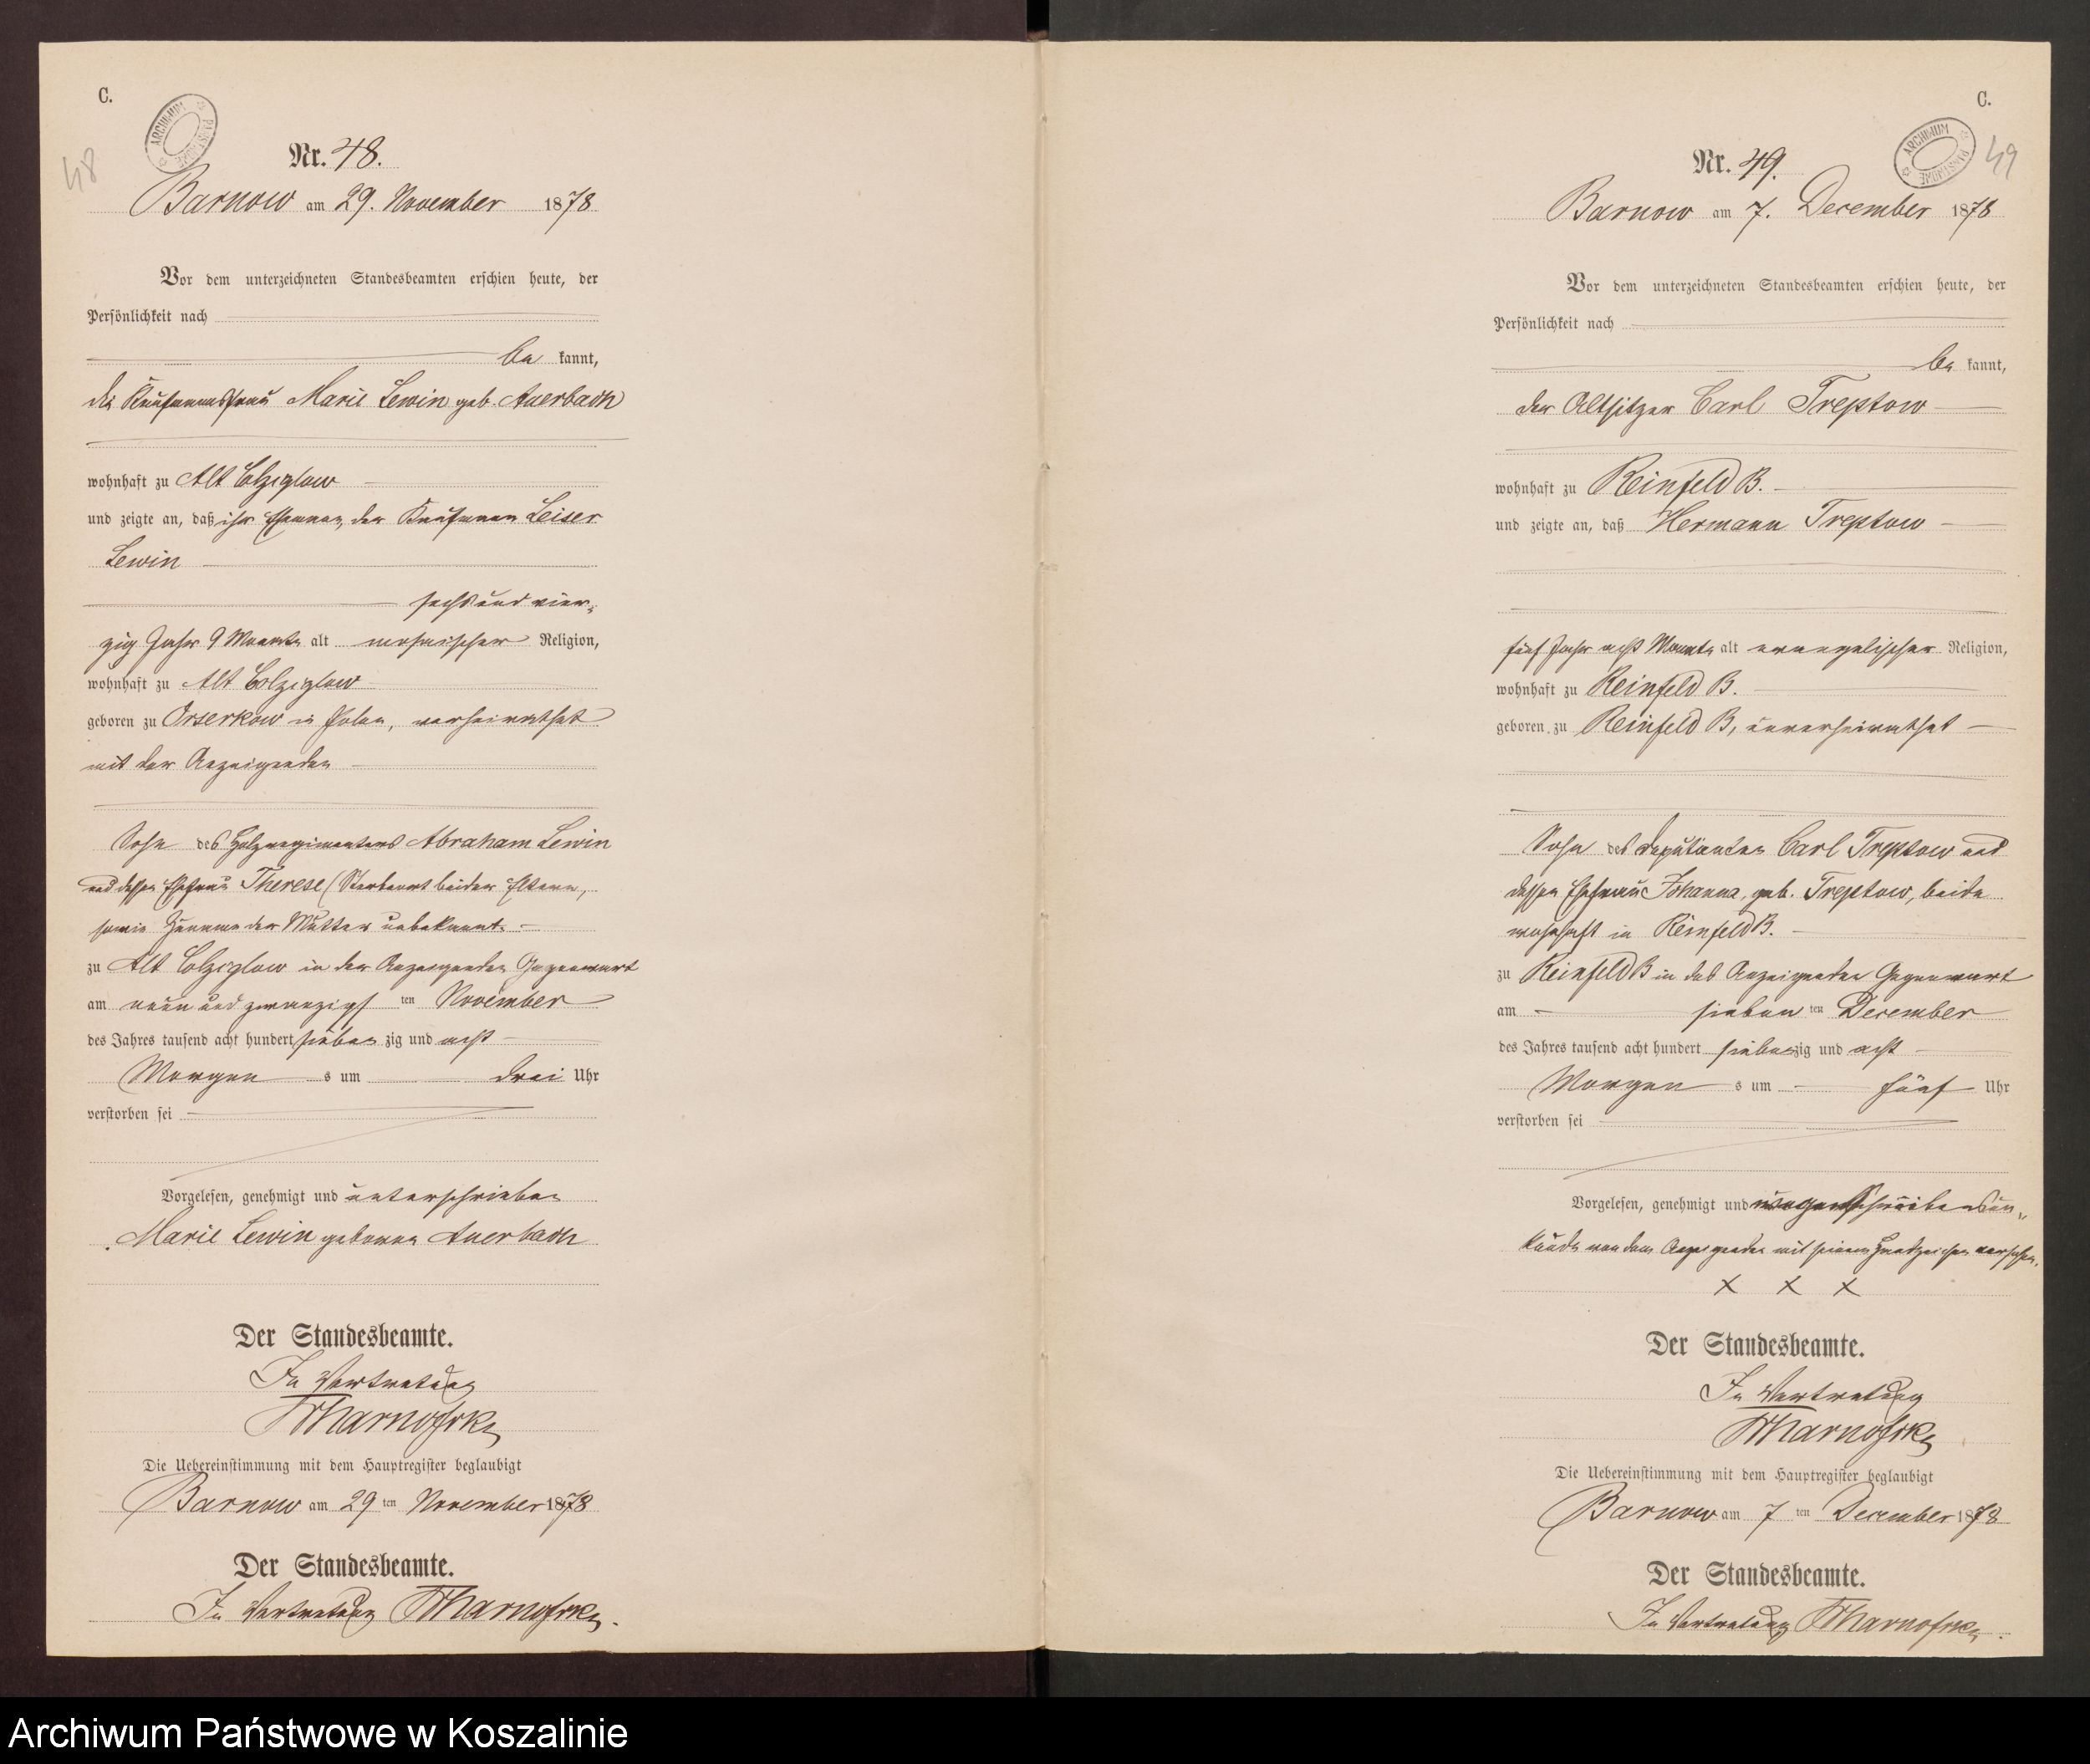 C.
ARCHIWUM PAŃSTWOWE
48
Nr. 48.
Barnow am 29. November 1878
Vor dem unterzeichneten Standesbeamten erschien heute, der
Persönlichkeit nach
be kannt,
die Kaufmannsfrau Marie Lewin geb. Auerbach
wohnhaft zu Alt Colziglow
und zeigte an, daß ihr Ehemann, der Kaufmann Leiser
Lewin
sechs und vier-
zig Jahr 9 Monate alt mosaischer Religion,
wohnhaft zu Alt Colziglow
geboren zu Orserkow in Polen, verheirathet
mit der Anzeigenden
Sohn des Abraham Lewin
und dessen Ehefrau Therese (Sterbeort beider Eltern,
sowie Zuname der Mutter unbekannt.
zu Alt Colziglow in der Anzeigenden Gegenwart
am neun und zwanzigs ten November
des Jahres tausend acht hundert sieben zig und acht
Morgen s um drei Uhr
verstorben sei
Vorgelesen, genehmigt und unterschrieben
Marie Lewin geborene Auerbach
Der Standesbeamte.
In Vertretung
Die Uebereinstimmung mit dem Hauptregister beglaubigt
Barnow am 29 ten November 1878
Der Standesbeamte.
In Vertretung
C.
ARCHIWUM PAŃSTWOWE
49
Nr. 49.
Barnow am 7. December 1878
Vor dem unterzeichneten Standesbeamten erschien heute, der
Persönlichkeit nach
be kannt,
der Altsitzer Carl Treptow
wohnhaft zu Reinfeld B.
und zeigte an, daß Hermann Treptow
fünf Jahr acht Monate alt evangelischer Religion,
wohnhaft zu Reinfeld B.
geboren zu Reinfeld B, unverheirathet
Sohn des Deputanten Carl Treptow und
dessen Ehefrau Johanna, geb. Treptow, beide
wohnhaft in Reinfeld B.
zu Reinfeld B in des Anzeigenden Gegenwart
am sieben ten December
des Jahres tausend acht hundert sieben zig und acht
Morgen s um fünf Uhr
verstorben sei
Vorgelesen, genehmigt und wegen Schreibensun-
kunde von dem Anzeigenden mit seinem Handzeichen versehen.
X X X
Der Standesbeamte.
In Vertretung
Die Uebereinstimmung mit dem Hauptregister beglaubigt
Barnow am 7 ten December 1878
Der Standesbeamte.
In Vertretung
Archiwum Państwowe w Koszalinie